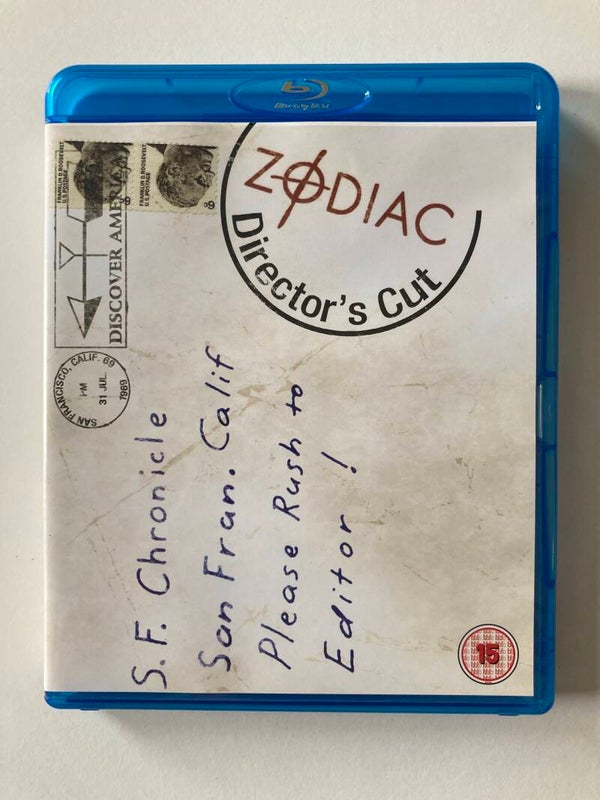 Blu-ray Disc
ZODIAC
Director's Cut
FRANKLIN D. ROOSEVELT
U.S. POSTAGE
FRANKLIN D. ROOSEVELT
U.S. POSTAGE
DISCOVER AMERICA
SAN FRANCISCO, CALIF. 69
PM
31 JUL
1969
S.F. Chronicle
San Fran. Calif
Please Rush to
Editor !
15